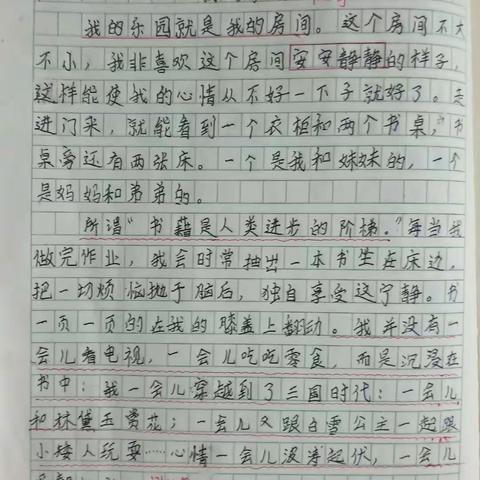 我的乐园就是我的房间。这个房间不大
不小，我非喜欢这个房间安安静静的样子，
这样能使我的心情从不好一下子就好了。走
进门来，就能看到一个衣柜和两个书桌，书
桌旁还有两张床。一个是我和妹妹的，一个
是妈妈和弟弟的。
所谓“书藉是人类进步的阶梯。”每当我
做完作业，我会时常抽出一本书坐在床边，
把一切烦恼抛于脑后，独自享受这宁静。书
一页一页的在我的膝盖上翻动。我并没有一
会儿看电视，一会儿吃吃零食，而是沉浸在
书中：我一会儿穿越到了三国时代；一会儿
和林黛玉赏花；一会儿又跟白雪公主一起跟
小矮人玩耍……心情一会儿没有起伏，一会儿